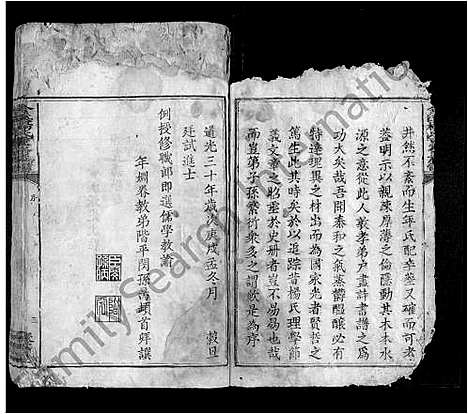 井然不紊而生年氏配卒塋又確而可考
蓋明示以親疎厚薄之倫隱動其木本水
源之意從此人敦孝弟户盡詩書譜之為
功大矣哉吾聞泰和之氣蒸欝醖釀必有
特達瓌異之材出而為國家光者賢哲之
篤生此其時矣於以追踪昔楊氏理學節
義文章之昭垂於史册者豈不易易也哉
而豈第子孫繁衍衆多之謂歟是為序
道光三十年歲次庚戌孟冬月 穀旦
廷試進士
例授修職郎即選儒學教諭
年姻眷教弟階平閔孫萬頓首拜譔
FamilySearch International